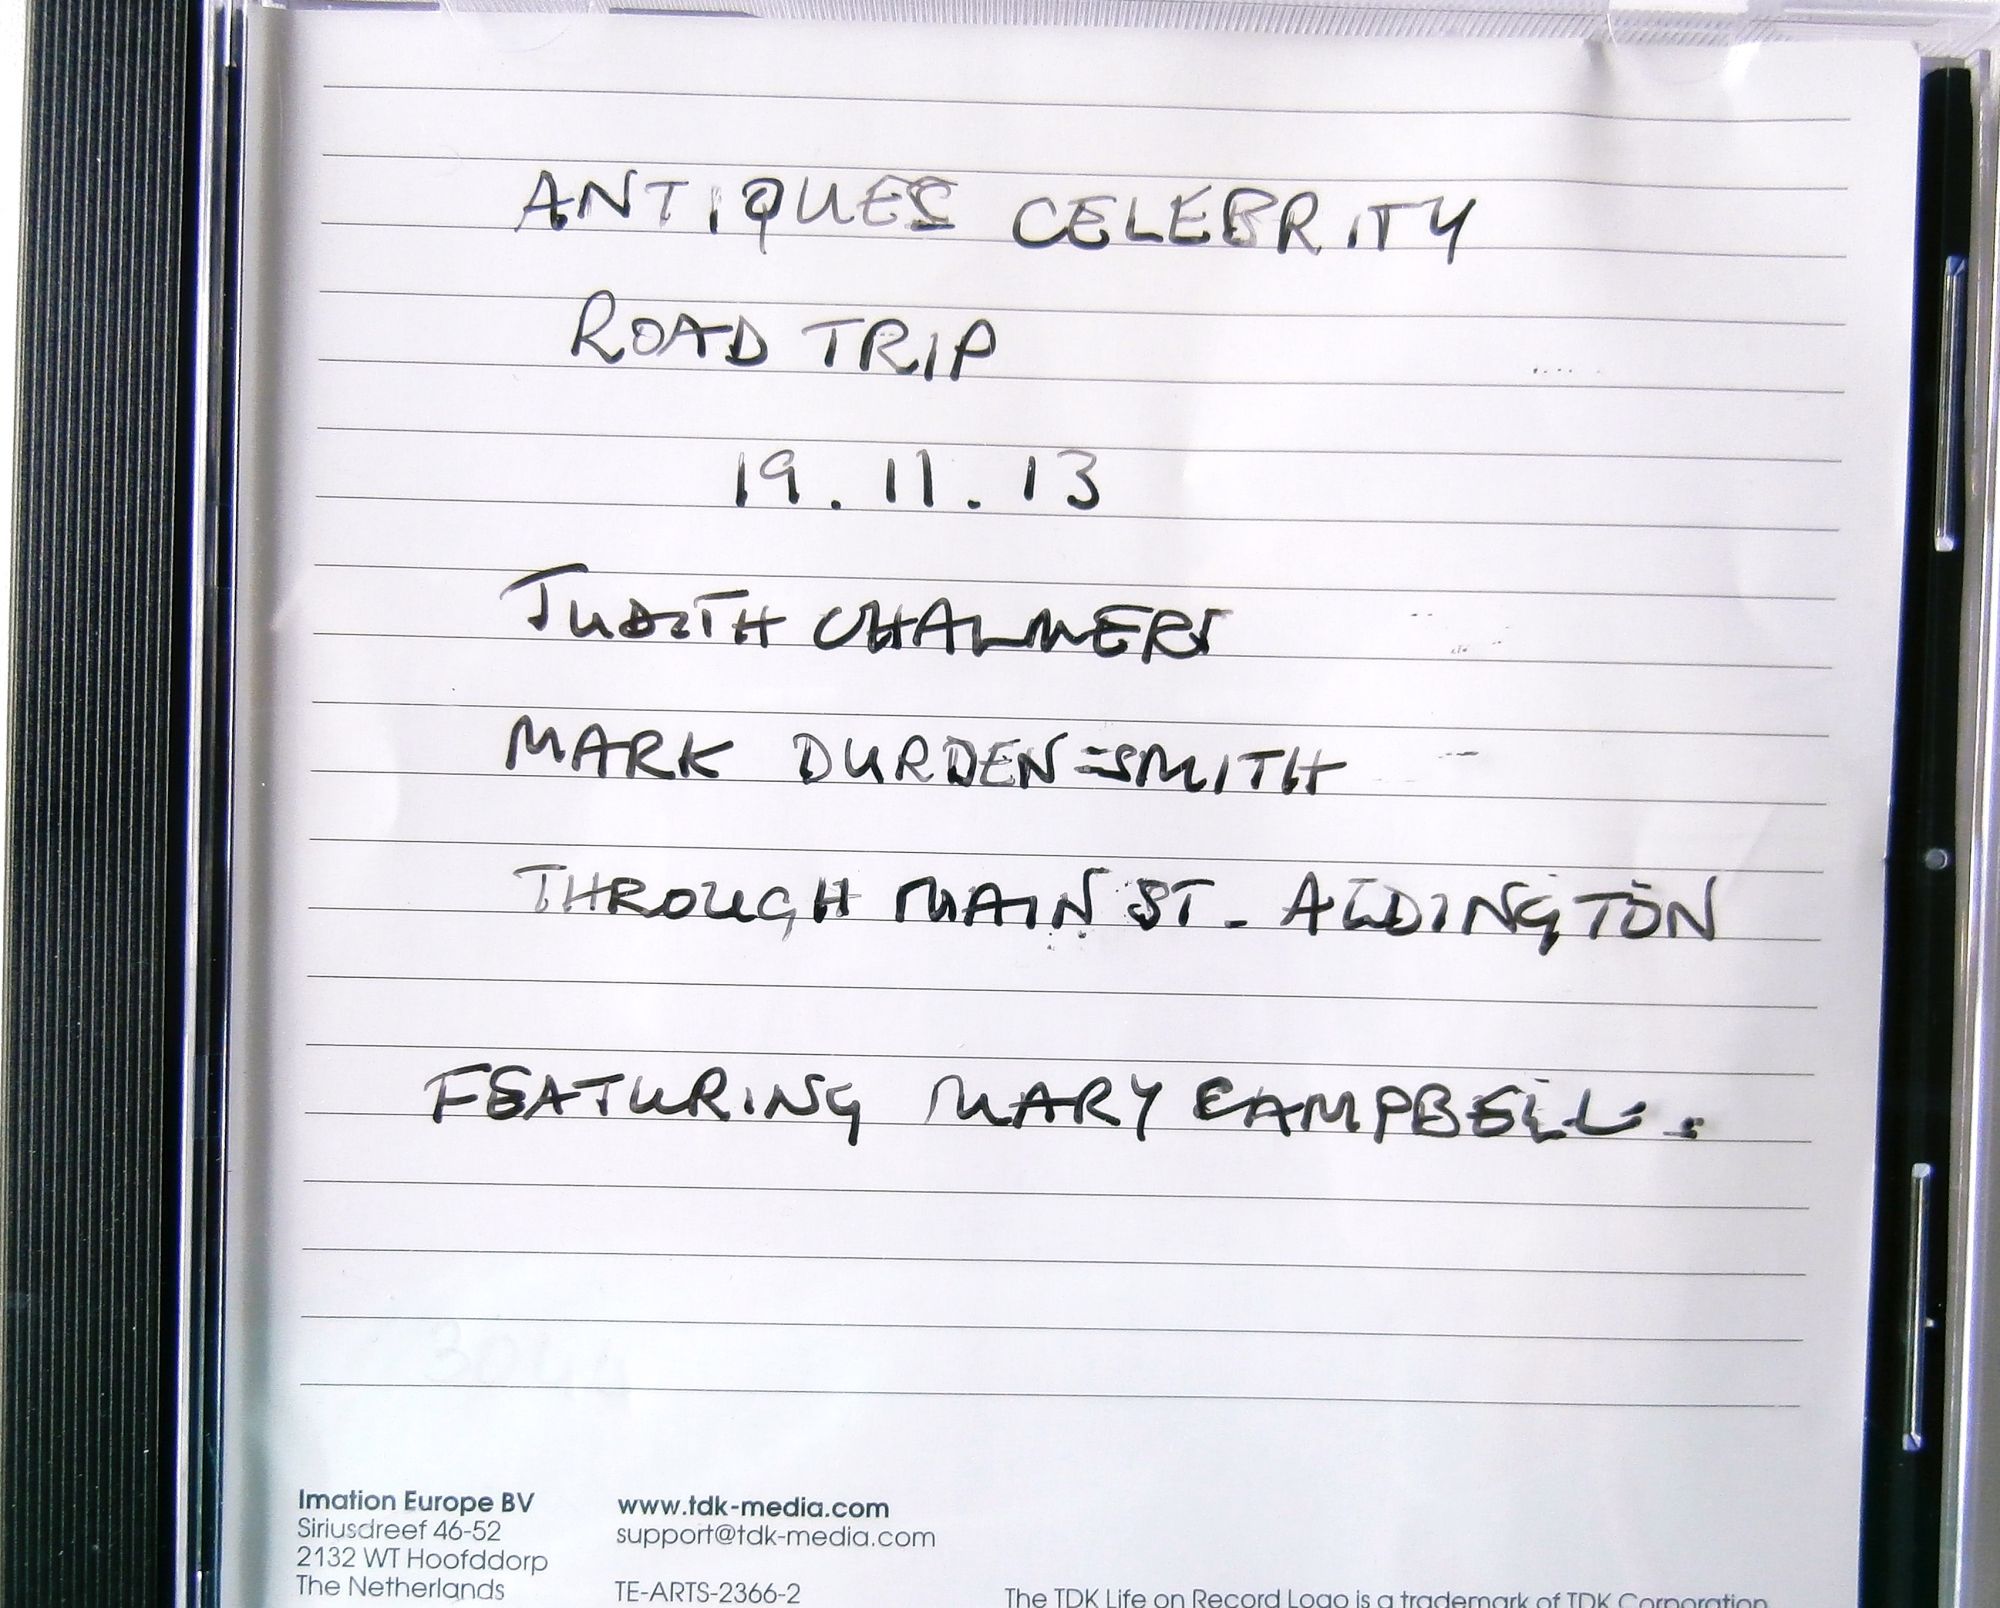 ANTIQUES CELEBRITY
ROAD TRIP
19.11.13
JUDITH CHALMERS
MARK DURDEN-SMITH
THROUGH MAIN ST. ALDINGTON
FEATURING MARY CAMPBELL.
Imation Europe BV
Siriusdreef 46-52
2132 WT Hoofddorp
The Netherlands
www.tdk-media.com
support@tdk-media.com
TE-ARTS-2366-2
The TDK Life on Record Logo is a trademark of TDK Corporation